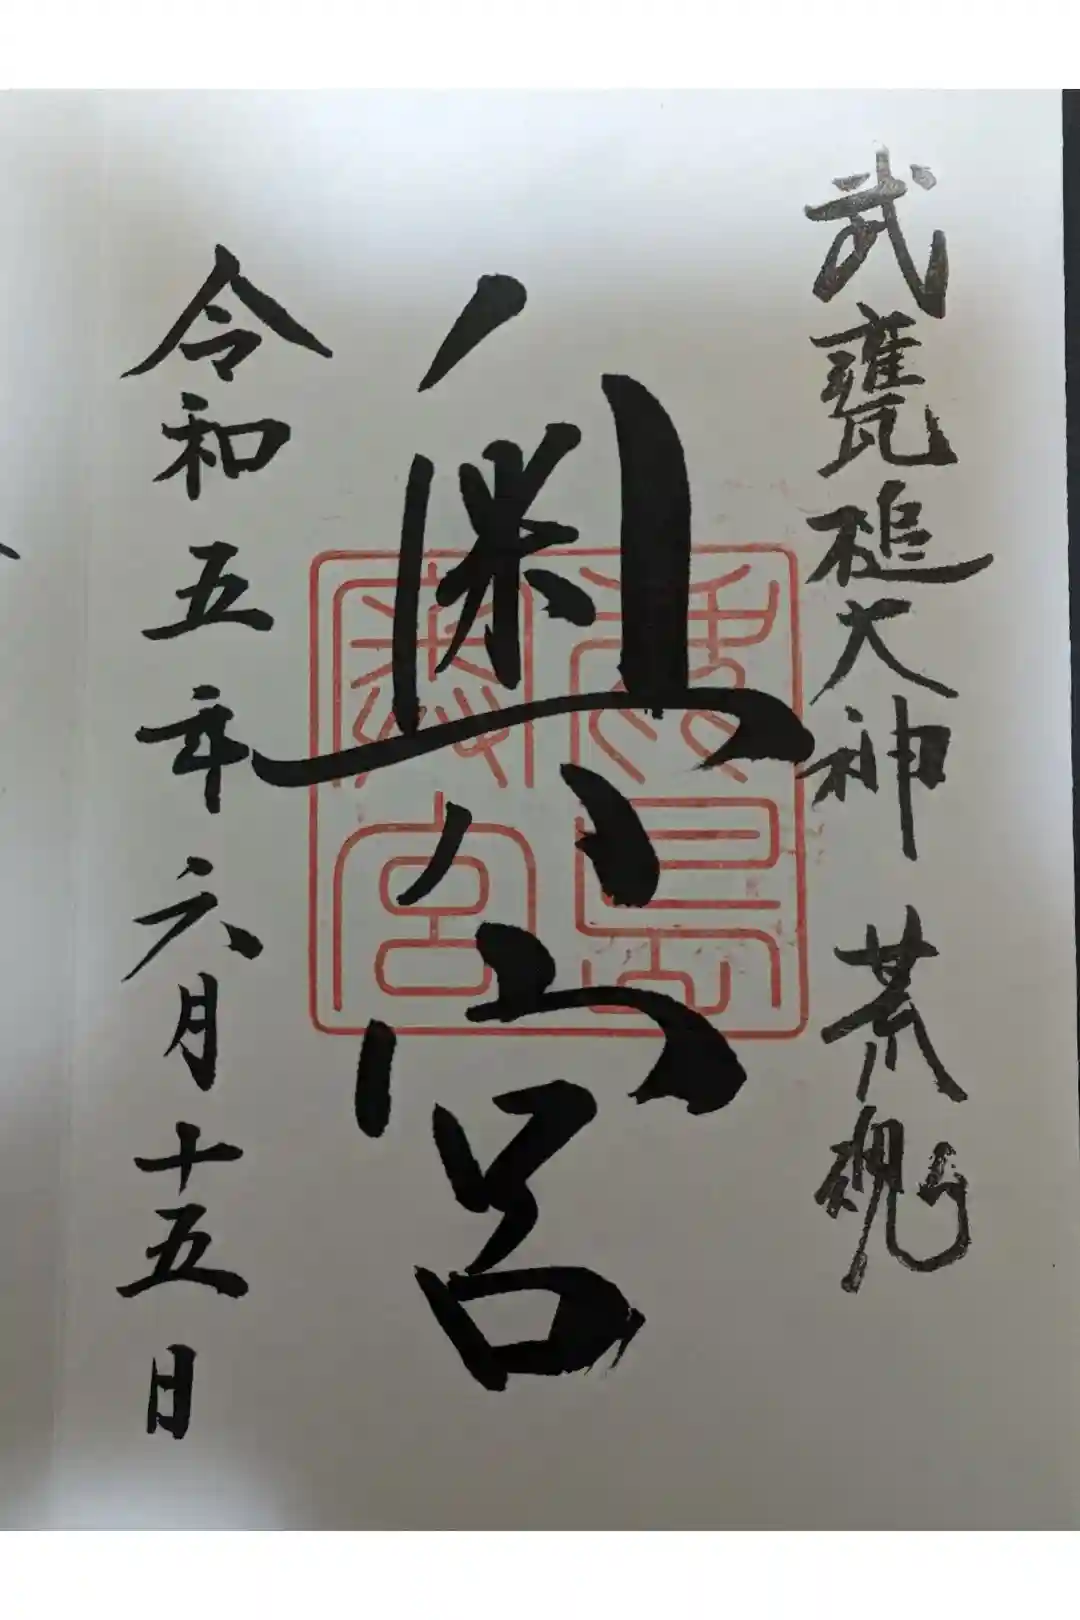 武甕槌大神 荒魂
奥宮
鹿島神宮
令和五年六月十五日